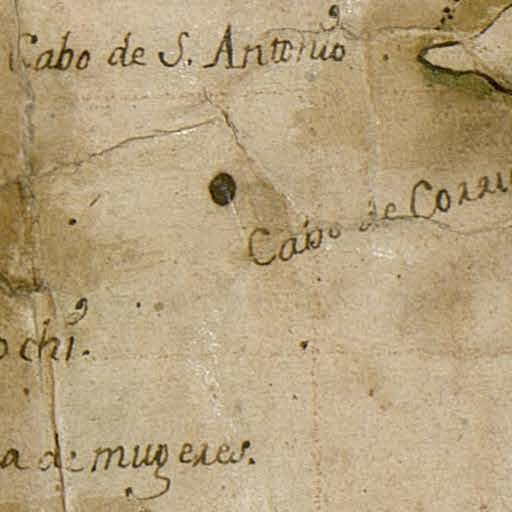 Cabo de S. Antonio
Cabo de Corri
ochi.
a de mugeres.